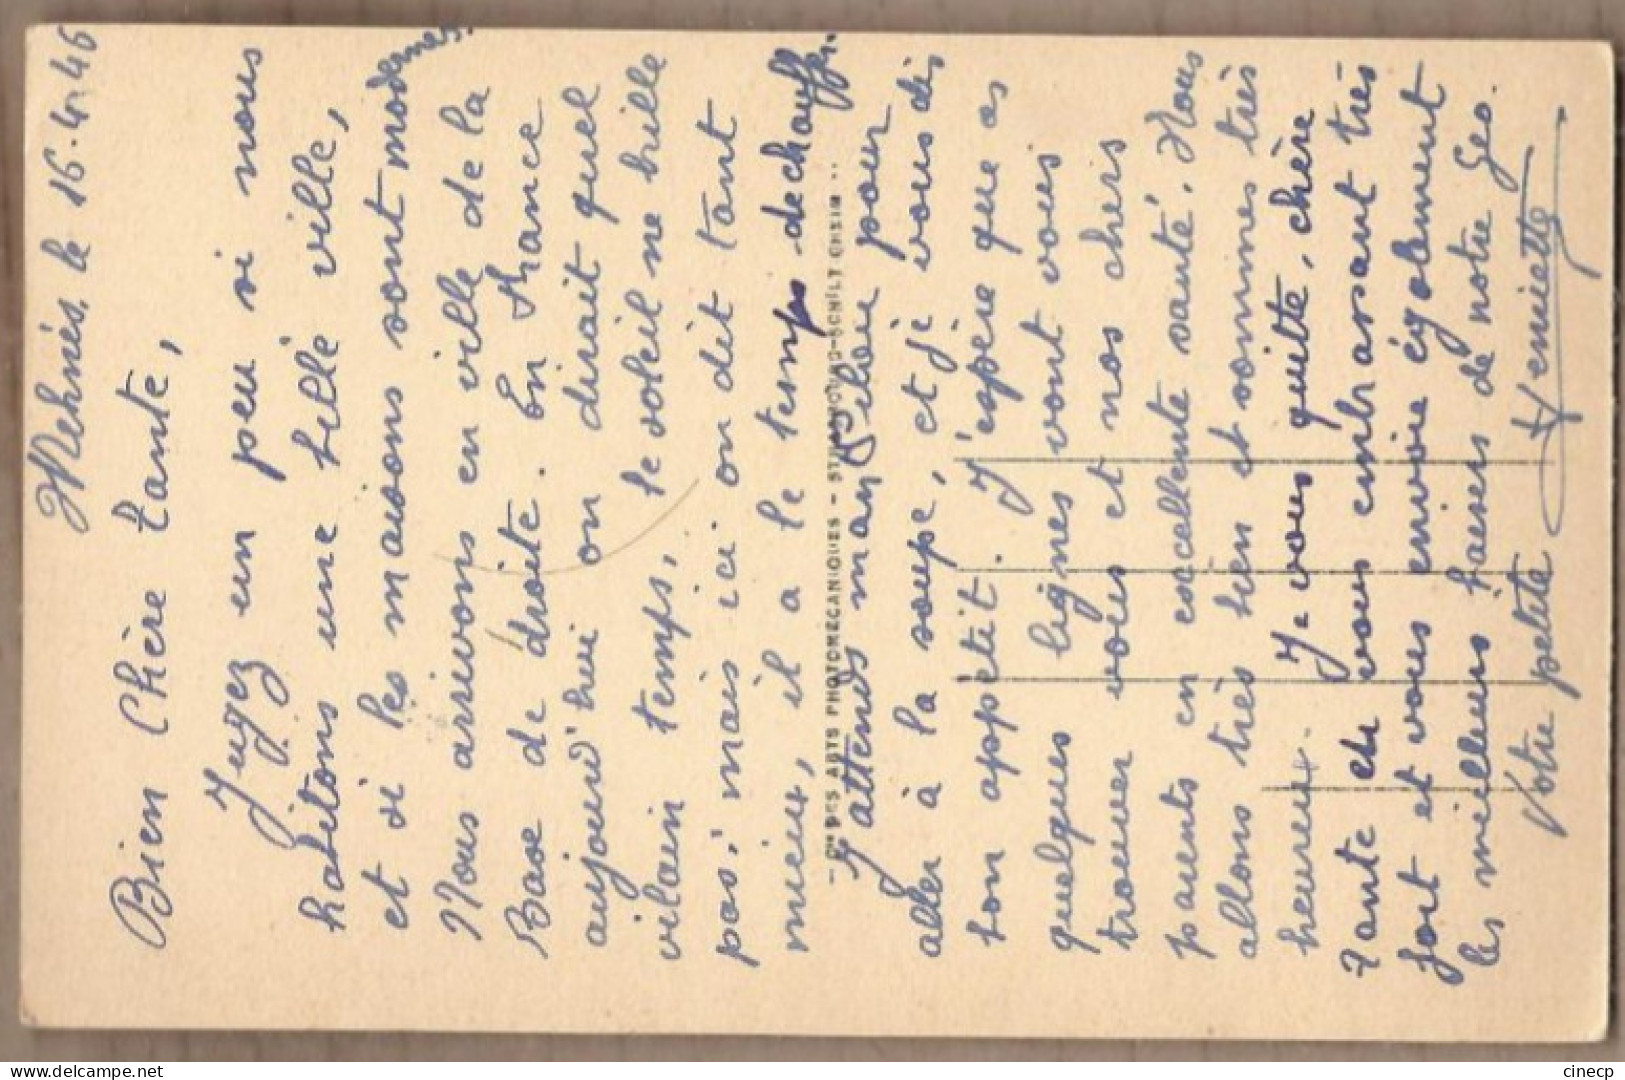 Meknès, le 16.4.46
Bien Chère tante,
Jugez un peu si nous
habitons une belle ville,
et si les maisons sont modernes.
Nous arrivons en ville de la
Base de droite. En France
aujourd'hui on dirait quel
vilain temps, le soleil ne brille
pas, mais ici on dit tant
mieux, il a le temps de chauffer.
- CIE DES ARTS PHOTOMECANIQUES - STRASBOURG-SCHILTIGHEIM ..
J'attends mon pour
aller à la soupe, et je vous dis
bon appétit. J'espère que ces
quelques lignes vont vous
trouver vous et nos chers
parents en excellente santé. Nous
allons très bien et sommes très
heureux. Je vous quitte, chère
Tante en vous embrassant très
fort et vous envoie également
les meilleurs baisers de notre Geo.
Votre petite Henriette
cinecp